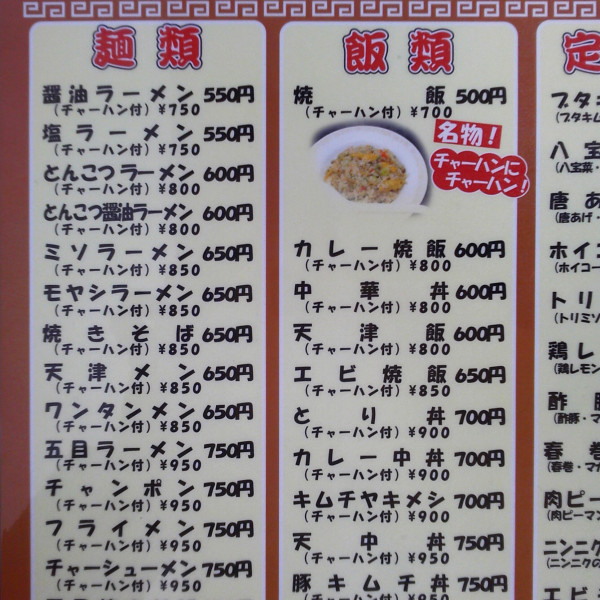 麺類
醤油ラーメン 550円
(チャーハン付) ¥750
塩ラーメン 550円
(チャーハン付) ¥750
とんこつラーメン 600円
(チャーハン付) ¥800
とんこつ醤油ラーメン 600円
(チャーハン付) ¥800
ミソラーメン 650円
(チャーハン付) ¥850
モヤシラーメン 650円
(チャーハン付) ¥850
焼きそば 650円
(チャーハン付) ¥850
天津メン 650円
(チャーハン付) ¥850
ワンタンメン 650円
(チャーハン付) ¥850
五目ラーメン 750円
(チャーハン付) ¥950
チャンポン 750円
(チャーハン付) ¥950
フライメン 750円
(チャーハン付) ¥950
チャーシューメン 750円
(チャーハン付) ¥950
飯類
焼飯 500円
(チャーハン付) ¥700
名物!
チャーハンに
チャーハン!
カレー焼飯 600円
(チャーハン付) ¥800
中華丼 600円
(チャーハン付) ¥800
天津飯 600円
(チャーハン付) ¥800
エビ焼飯 650円
(チャーハン付) ¥850
とり丼 700円
(チャーハン付) ¥900
カレー中丼 700円
(チャーハン付) ¥900
キムチヤキメシ 700円
(チャーハン付) ¥900
天中丼 750円
(チャーハン付) ¥950
豚キムチ丼 750円
(チャーハン付) ¥950
定
ブタキ
(ブタキム
八宝
(八宝菜・
唐あ
(唐あげ・
ホイコ
(ホイコー
トリ
(トリミソ
鶏レ
(鶏レモン
酢豚
(酢豚・マ
春巻
(春巻・マカ
肉ピー
(肉ピーマン
ニンニク
(ニンニクの
エビ